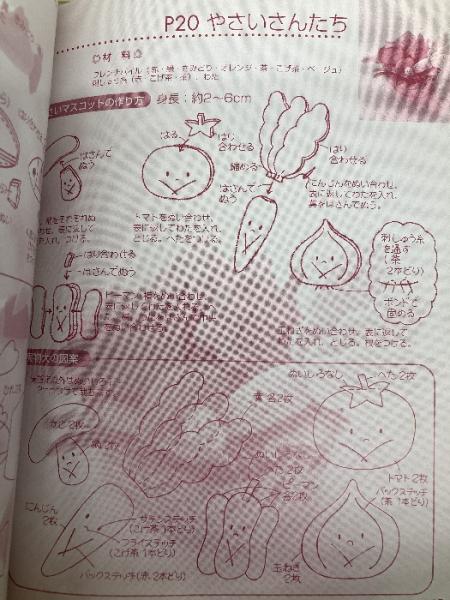 P20 やさいさんたち
材料
フレンチパイル（赤・緑・きみどり・オレンジ・茶・こげ茶・ベージュ）
刺しゅう糸（赤・こげ茶・茶）、わた
さいマスコットの作り方 身長：約2～6cm
はる
はり
合わせる
はり
合わせる
縮める
はさんで
ぬう
はさんで
ぬう
にんじんをぬい合わせ、
表に返してわたを入れ、
葉をはさんでぬう。
トマトをぬい合わせ、
表に返してわたを入れ、
とじる。へたをつける。
刺しゅう糸
を通す
（茶
2本どり）
ボンドで
固める
はり合わせる
はさんでぬう
玉ねぎをぬい合わせ、表に返して
わたを入れ、とじる。根をつける。
実物大の図案
ぬいしろなし
へた 2枚
葉 各2枚
かさ 2枚
ぬいしろなし
へた 2枚
ピーマン
各2枚
トマト 2枚
バックステッチ
（茶 1本どり）
にんじん
2枚
サテンステッチ
（こげ茶 1本どり）
フライステッチ
（こげ茶 1本どり）
バックステッチ（赤、2本どり）
玉ねぎ
2枚